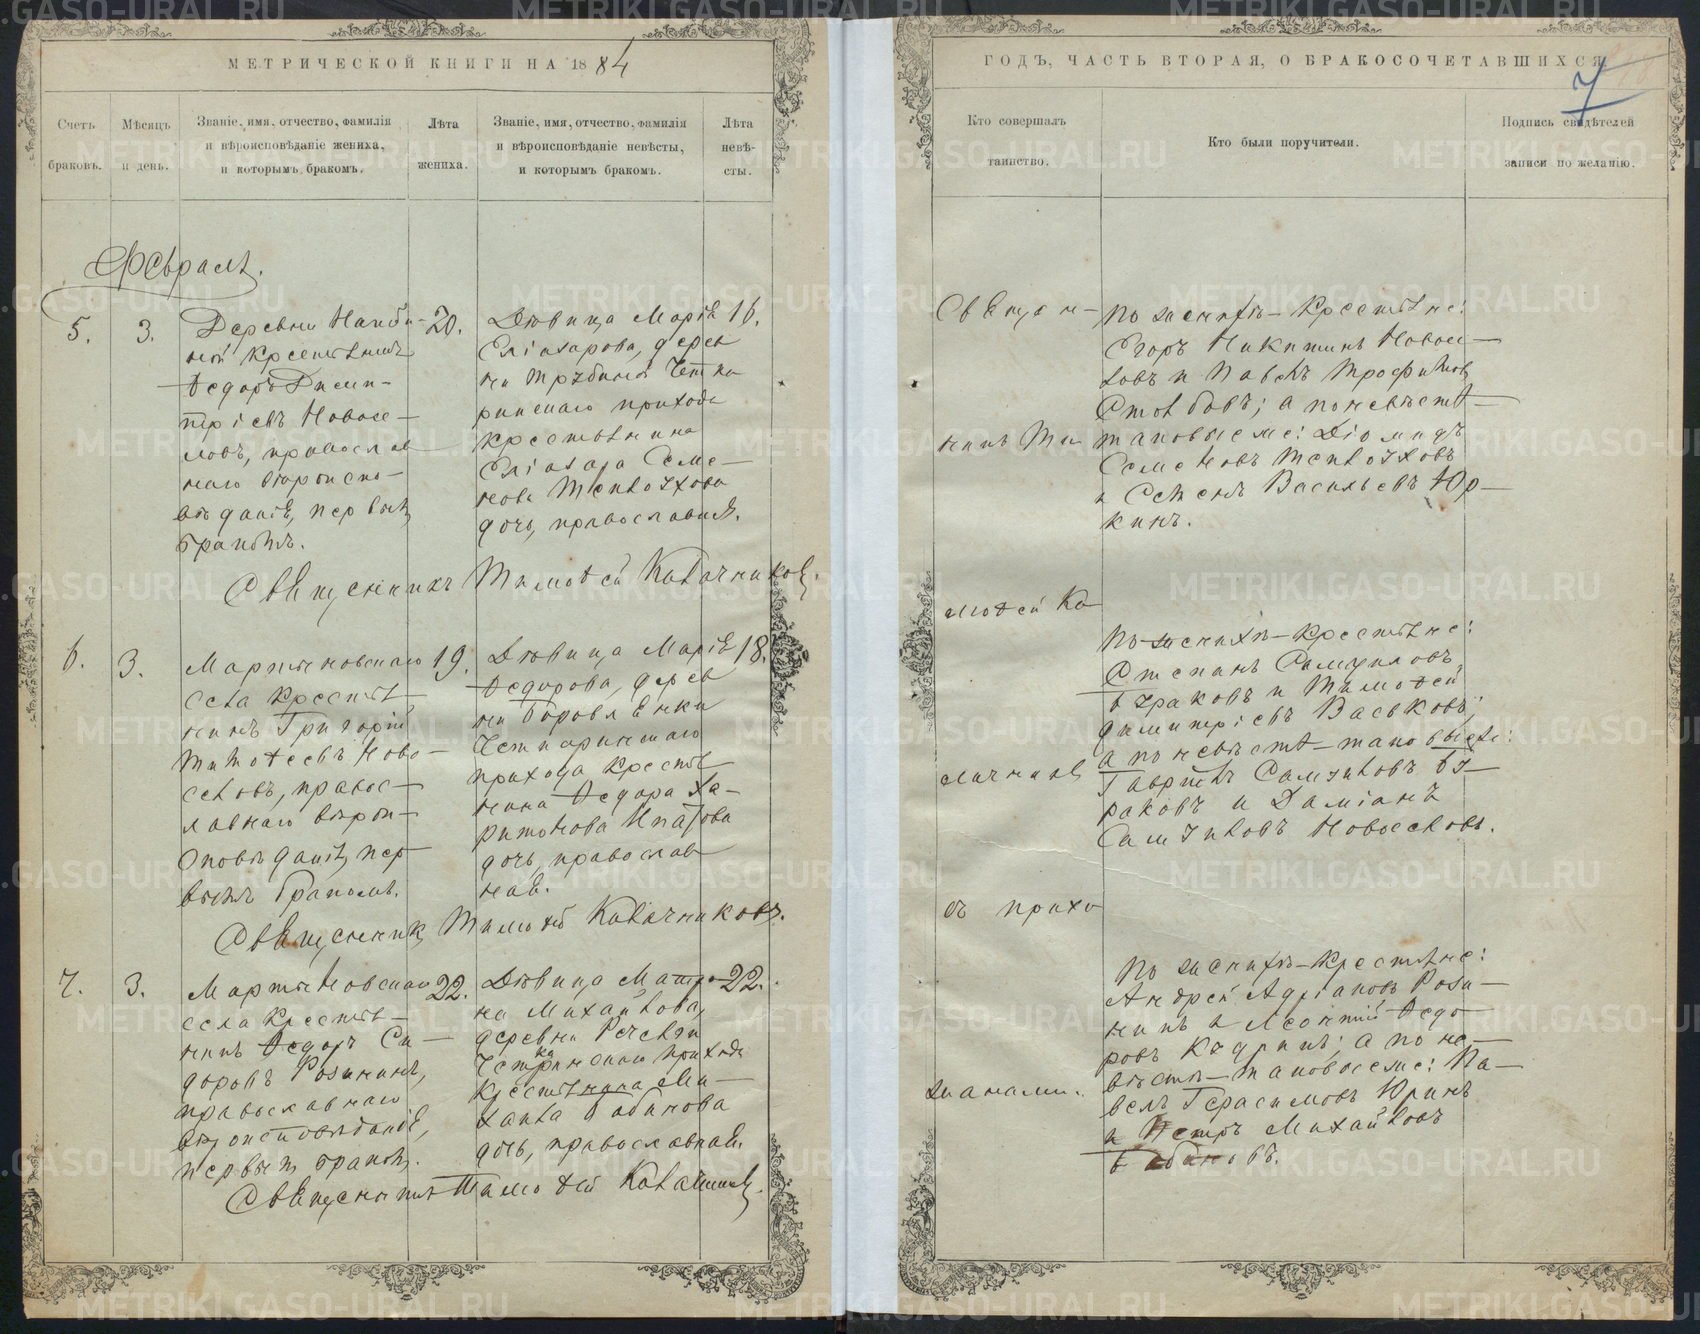 МЕТРИЧЕСКОЙ КНИГИ НА 1884
Счетъ браковъ.
Мѣсяцъ и день.
Званіе, имя, отчество, фамилія и вѣроисповѣданіе жениха, и которымъ бракомъ.
Лѣта жениха.
Званіе, имя, отчество, фамилія и вѣроисповѣданіе невѣсты, и которымъ бракомъ.
Лѣта невѣ-
сты.
Февраль.
5.
3.
Деревни
ной крестьянинъ
Ѳедоръ Дими-
тріевъ Новосе-
ловъ, православ
наго вѣроиспо-
вѣданія, первымъ
бракомъ.
20.
Дѣвица Марія
Еліазарова, дерев
ни
ринскаго прихода
крестьянина
Еліазара Семе-
нова
дочь, православная.
16.
Священникъ Тимоѳей Калачниковъ.
6.
3.
Мартыновскаго
села крестья-
нинъ Григорій
Тимоѳеевъ Ново-
селовъ, правос-
лавнаго вѣрои-
сповѣданія, пер
вымъ бракомъ.
19.
Дѣвица Марія
Ѳедорова, дерев
ни Боровлянки
прихода крестья
нина Ѳедора Ха-
ритонова Ипатова
дочь, православ
ная.
18.
Священникъ Тимоѳей Калачниковъ.
7.
3.
Мартыновскаго
села крестья-
нинъ Ѳедоръ Си-
доровъ Розининъ,
православнаго
вѣроисповѣданія,
первымъ бракомъ.
22.
Дѣвица Матро-
на Михайлова,
деревни
прихода
крестьянина Ми-
хаила Бабинова
дочь, православная.
22.
Священникъ Тимоѳей Калачниковъ.
ГОДЪ, ЧАСТЬ ВТОРАЯ, О БРАКОСОЧЕТАВШИХСЯ
7
Кто совершалъ таинство.
Кто были поручители.
Подпись свидѣтелей записи по желанію.
Священ-
никъ Ти
моѳей Ка
лачниковъ
съ прихо
жанами.
По женихѣ-крестьяне:
Егоръ Никитинъ Новосе-
ловъ и Павелъ Трофимовъ
Столбовъ; а по невѣстѣ-
таковые же: Діомидъ
Семеновъ
и Семенъ Васильевъ Юр-
кинъ.
По женихѣ-крестьяне:
Степанъ Самуиловъ
Бураковъ и Тимоѳей
Димитріевъ Васьковъ;
а по невѣстѣ-таковые же:
Гавріилъ Самуиловъ Бу-
раковъ и Даміанъ
Самуиловъ Новоселовъ.
По женихѣ-крестьяне:
Андрей Адріановъ Рози-
нинъ и Леонтій Ѳедо-
ровъ Кудринъ; а по не-
вѣстѣ-таковые же: Па-
велъ Герасимовъ Юринъ
и Петръ Михайловъ
Бабиновъ.
METRIKI.GASO-URAL.RU